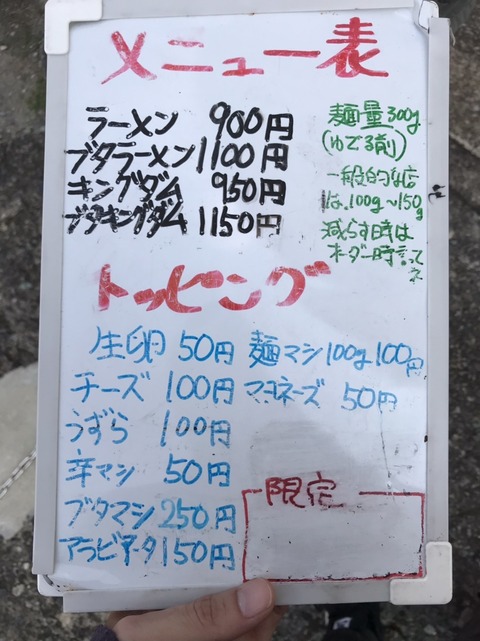 メニュー表
ラーメン 900円
ブタラーメン 1100円
キングダム 950円
ブタキングダム 1150円
麺量300g
(ゆでる前)
一般的なお店
は、100g~150g
減らす時は
オーダー時言ってネ
トッピング
生卵 50円
チーズ 100円
うずら 100円
辛マシ 50円
ブタマシ 250円
アラビアータ 150円
麺マシ100g 100円
マヨネーズ 50円
限定